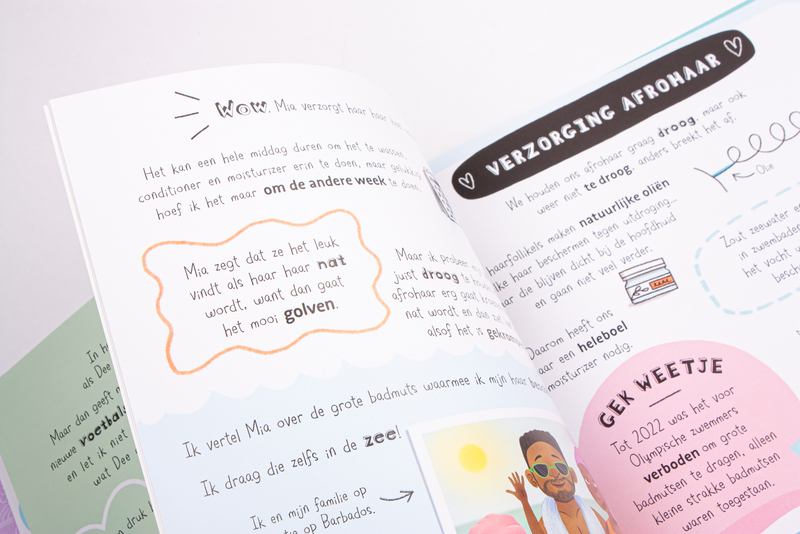 Wow. Mia verzorgt haar haar
Het kan een hele middag duren om het te wassen,
conditioner en moisturizer erin te doen, maar gelukkig
hoef ik het maar om de andere week te doen.
Mia zegt dat ze het leuk
vindt als haar haar nat
wordt, want dan gaat
het mooi golven.
Maar ik probeer
juist droog te
afrohaar erg gaat
nat wordt en dan
alsof het is
Ik vertel Mia over de grote badmuts waarmee ik mijn haar
Ik draag die zelfs in de zee!
Ik en mijn familie op
op Barbados.
In
als Dee
Maar dan geeft
nieuwe
en let ik niet
wat Dee
druk
VERZORGING AFROHAAR
We houden ons afrohaar graag droog, maar ook
weer niet te droog, anders breekt het af.
Olie
haarfollikels maken natuurlijke oliën
haar beschermen tegen uitdroging
die blijven dicht bij de hoofdhuid
en gaan niet veel verder.
Zout zeewater
in zwembaden
het vocht
Daarom heeft ons
haar een heleboel
moisturizer nodig.
GEK WEETJE
Tot 2022 was het voor
Olympische zwemmers
verboden om grote
badmutsen te dragen, alleen
kleine strakke badmutsen
waren toegestaan.